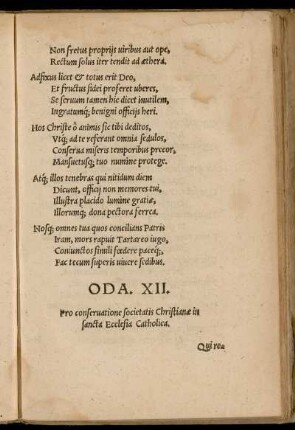 Non fretus proprijs uiribus aut ope,
Rectum solus iter tendit ad æthera.
Adfixus licet & totus erit Deo,
Et fructus fidei proferet uberes,
Se seruum tamen hic dicet inutilem,
Ingratumq; benigni officijs heri.
Hos Christe ô animis sic tibi deditos,
Vtq; ad te referant omnia sedulos,
Conserua miseris temporibus precor,
Mansuetusq; tuo numine protege.
Atq; illos tenebræ qui nitidum diem
Dicunt, officij non memores tui,
Illustra placido lumine gratiæ,
Illorumq; dona pectora ferrea.
Nosq; omnes tua quos concilians Patris
Iram, mors rapuit Tartareo iugo,
Coniunctos simili fœdere paceq,
Fac tecum superis uiuere sedibus.
ODA. XII.
Pro conseruatione societatis Christianæ in
sancta Ecclesia Catholica.
Qui re